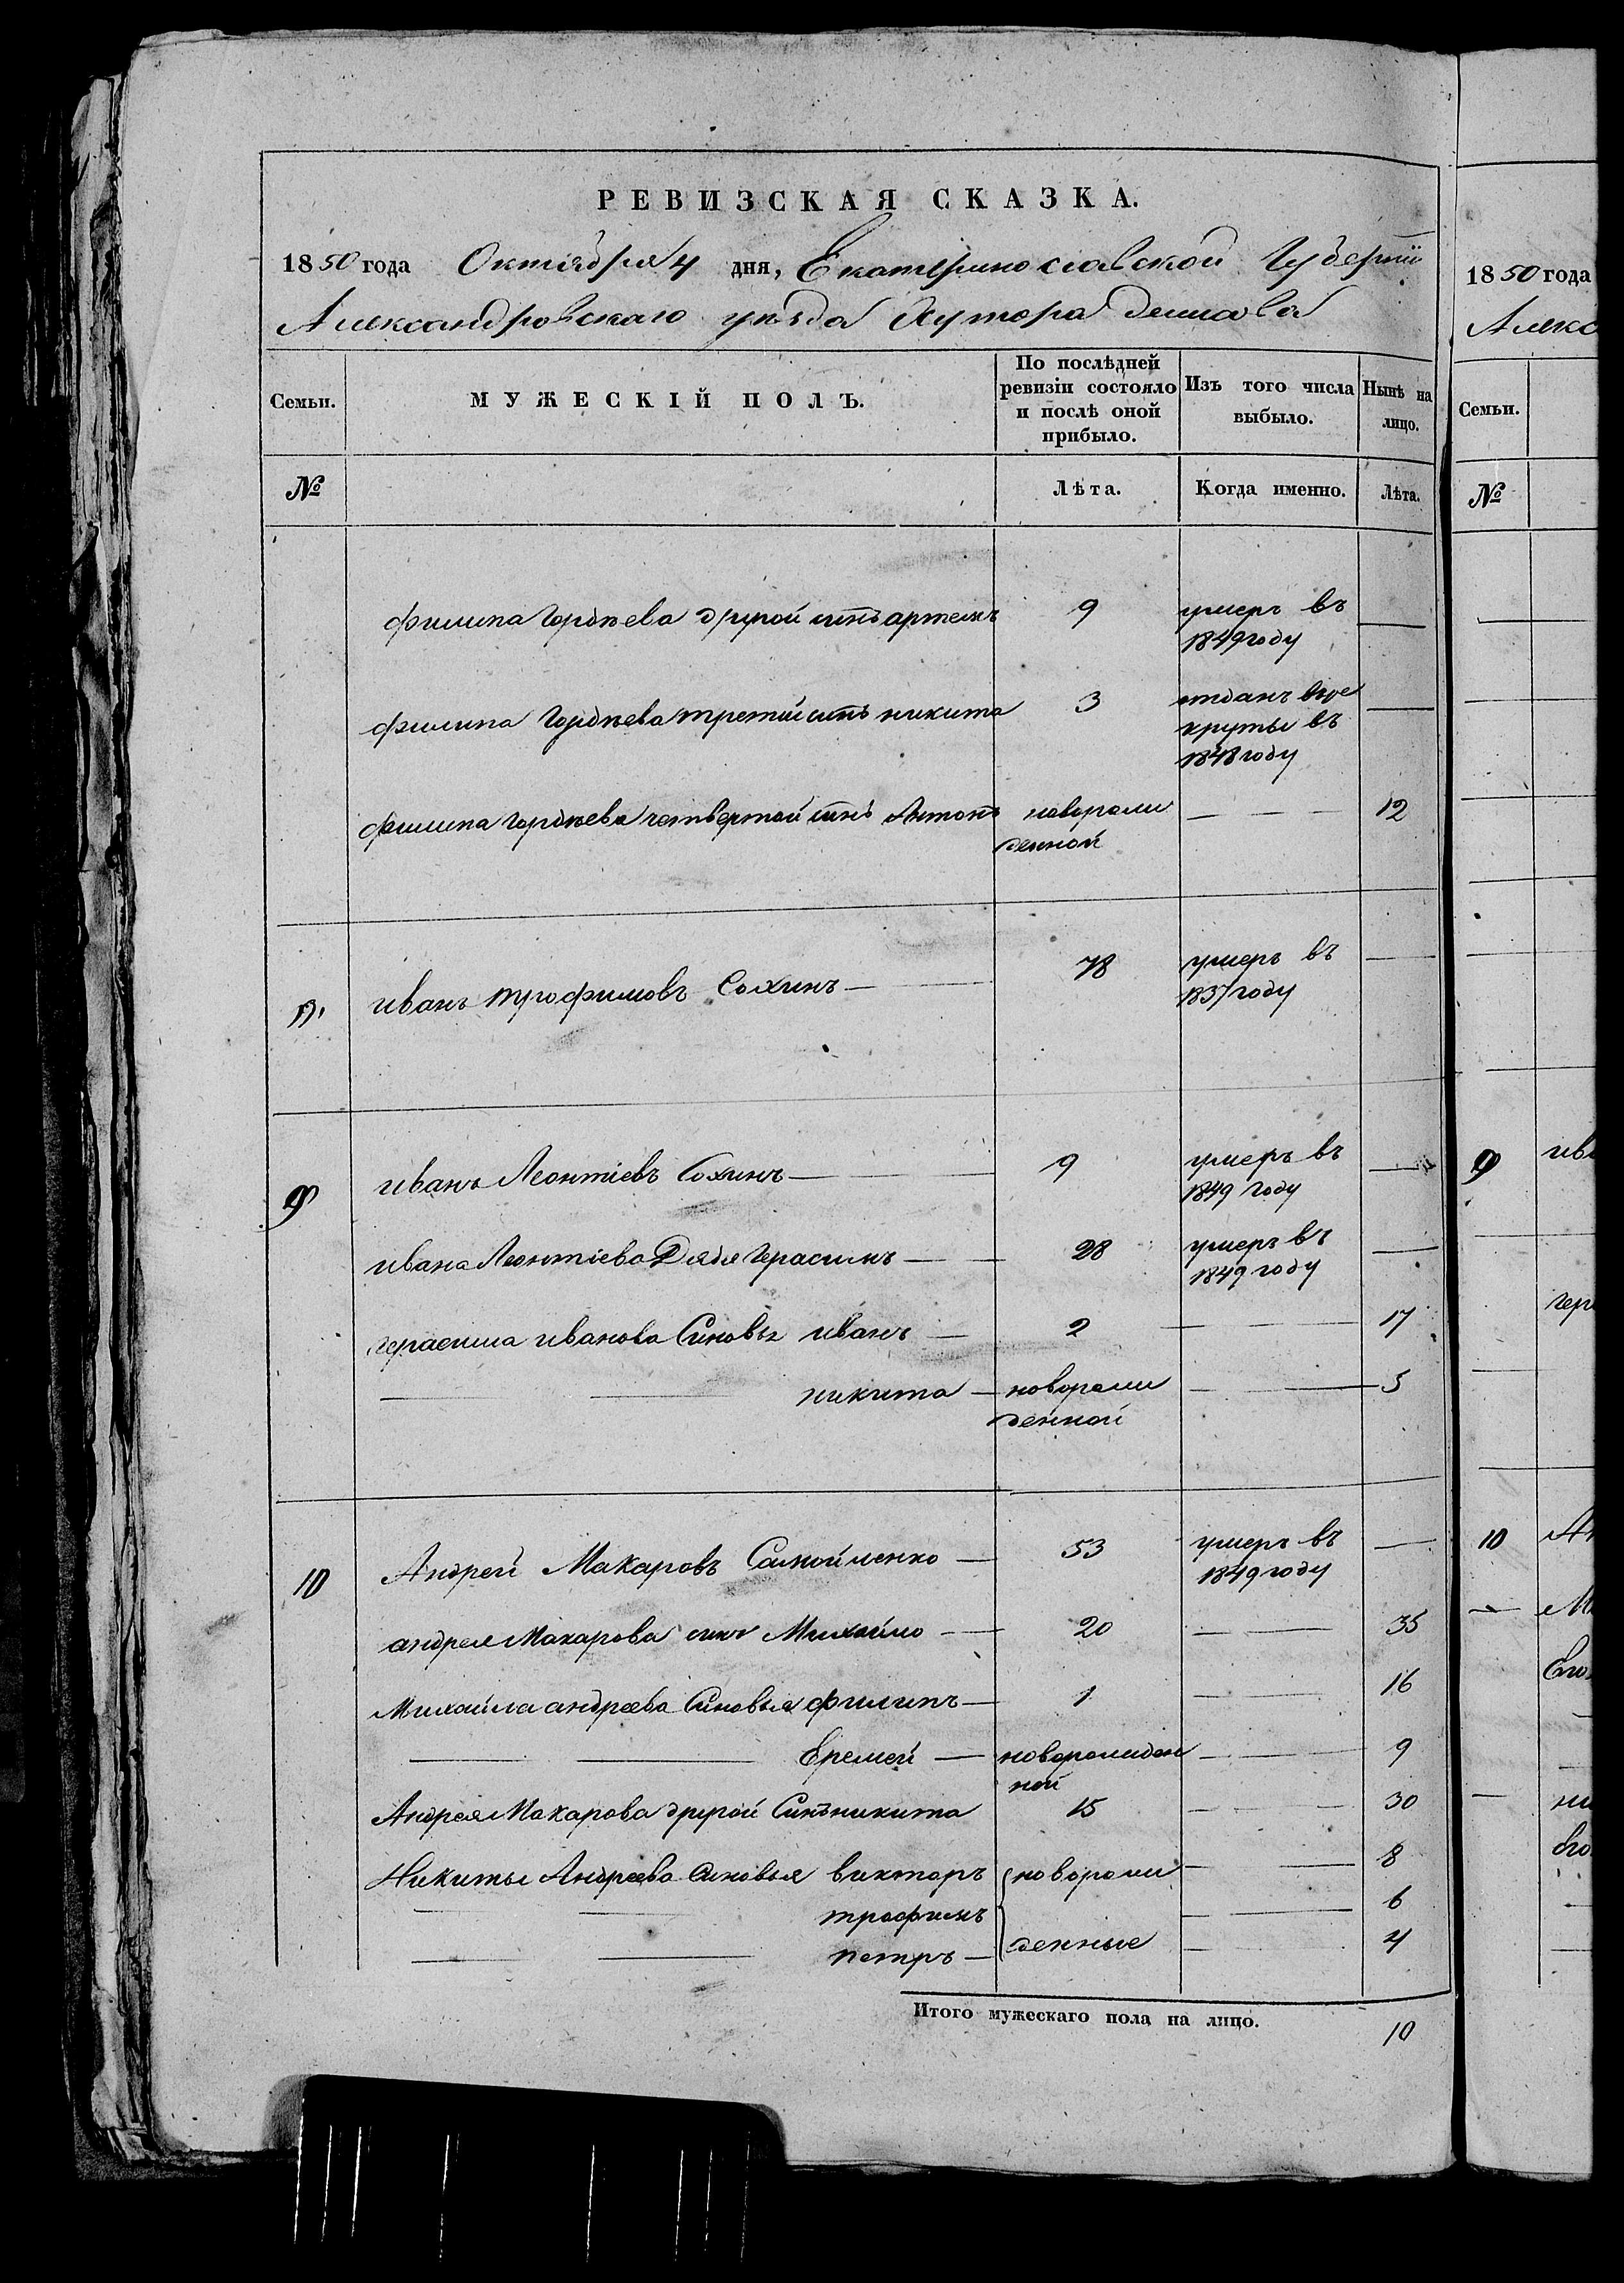 РЕВИЗСКАЯ СКАЗКА.
1850 года Октября 4 дня, Екатеринославской Губерніи
Александровскаго уѣзда Хутора
Семьи. МУЖЕСКІЙ ПОЛЪ. По послѣдней ревизіи состояло и послѣ оной прибыло. Изъ того числа выбыло. Нынѣ на лицо.
№ Лѣта. Когда именно. Лѣта.
филипа Гордѣева другой синъ артемъ 9 умеръ въ
1849 году
филипа Гордѣева третій синъ никита 3 отданъ вре
круты въ
1848 году
филипа гордѣева четвертой синъ Антонъ новорож 12
денной
иванъ трофимовъ Сохинъ 78 умеръ въ
1837 году
9 иванъ Леонтіевъ Сохинъ 9 умеръ въ
1849 году
ивана Леонтіева Дядя герасимъ 28 умеръ въ
1849 году
герасима иванова Синовья иванъ 2 17
никита новорож 5
денной
10 Андрей Макаровъ Самойленко 53 умеръ въ
1849 году
андрея Макарова синъ Михайло 20 35
Михайла андреева Синовья филипъ 1 16
Еремей новорожден 9
ной
Андрея Макарова другой Синъ никита 15 30
Никиты Андреева Синовья викторъ новорож 8
трофимъ 6
петръ денные 4
Итого мужескаго пола на лицо. 10
1850 года
Алекс
Семьи.
№
9 ива
гер
10 Ан
Ми
Его
ни
Его